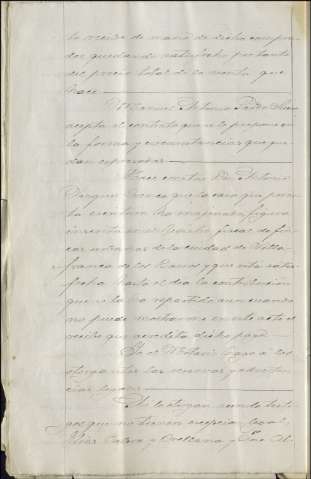 ha recibido de mano de dicho compra-
dor quedando satisfecho por tanto
del precio total de la venta que
hace.
Don Manuel Antonio
acepta el contrato que se le propone en
la forma y circunstancias que que-
dan expresadas
Hace constar Don Antonio
que la casa que por es-
ta escritura ha enajenado figura
inscrita en el fiscal de fin-
cas urbanas de la ciudad de Villa-
franca de los Barros y que está satis-
fecha hasta el día la contribución
que se le ha repartido aun cuando
no puede mostrarme en este acto el
recibo que acredita dicho pago
Yo el Notario hago a los
otorgantes las reservas y adverten-
cias legales
Así lo otorgan siendo testi-
gos que no tienen excepción legal
Calvo y Orellana y Don